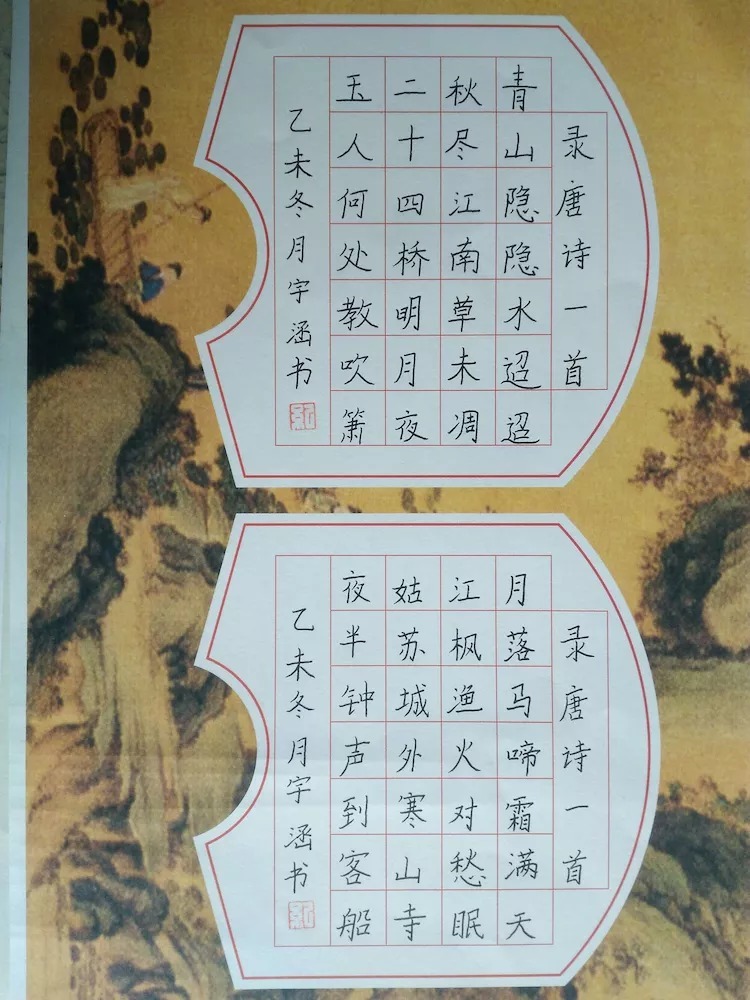 录唐诗一首
青山隐隐水迢迢
秋尽江南草未凋
二十四桥明月夜
玉人何处教吹箫
乙未冬月宇涵书
录唐诗一首
月落马啼霜满天
江枫渔火对愁眠
姑苏城外寒山寺
夜半钟声到客船
乙未冬月宇涵书